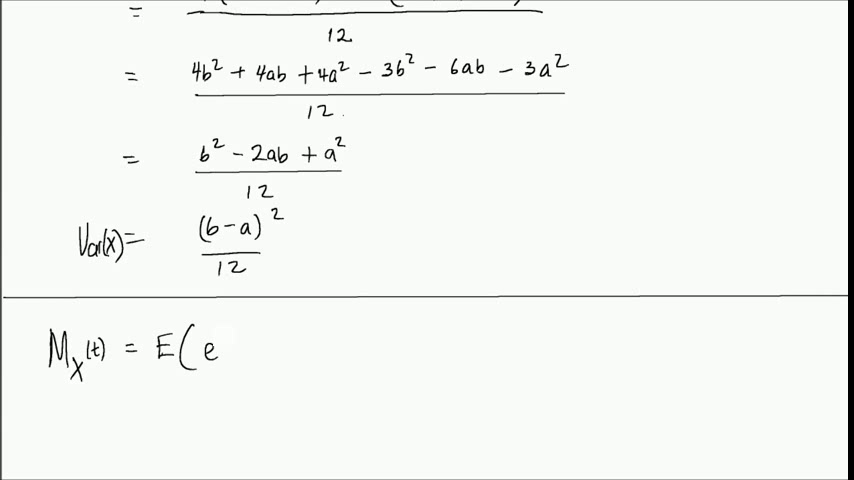 =
12
= 4b² + 4ab + 4a² − 3b² − 6ab − 3a²
12
= b² − 2ab + a²
12
Var(x) = (b − a)²
12
M_X(t) = E(e